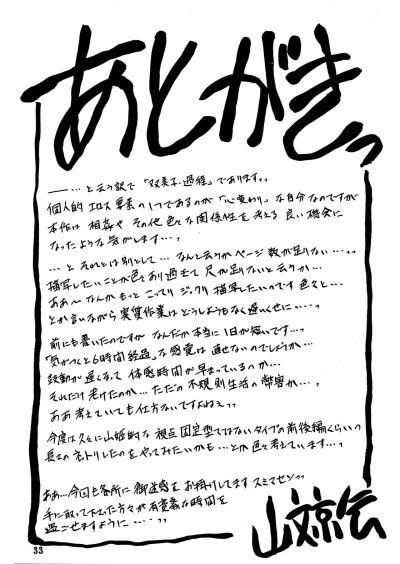 あとがきっ
――…と云う訳で「双美子・過程」であります。
個人的エロス要素の1つであるのが「心変わり」な自分なのですが
本作は相姦や その他 色々な関係性を考える良い機会に
なったような気がします…。
…と それとは別として…なんと云うかページ数が足りない…。
描写したいことが色々あり過ぎて尺が足りないと云うか…
ああ～なんかもっとこってりジックリ描写したいのです 色々と…
とか言いながら実質作業はどうしようもなく遅いくせに…。
前にも書いたのですが なんだか本当に1日が短いです…。
「気がつくと6時間経過」な感覚は直せないのでしょうか…
鼓動が遅くなって体感時間が早まっているのか…
それだけ老けたのか…ただの不規則生活の弊害か…。
ああ考えていても仕方ないですよねぇ。
今度は久々に山姫的な視点固定型ではないタイプの前後編くらいの
長さのネトリしたのをやってみたいかも…とか色々考えています…。
ああ…今回も各所に御迷惑をお掛けしてます スミマセン。
手に取って下さった方々が有意義な時間を
過ごせますように…。
山文京伝
33